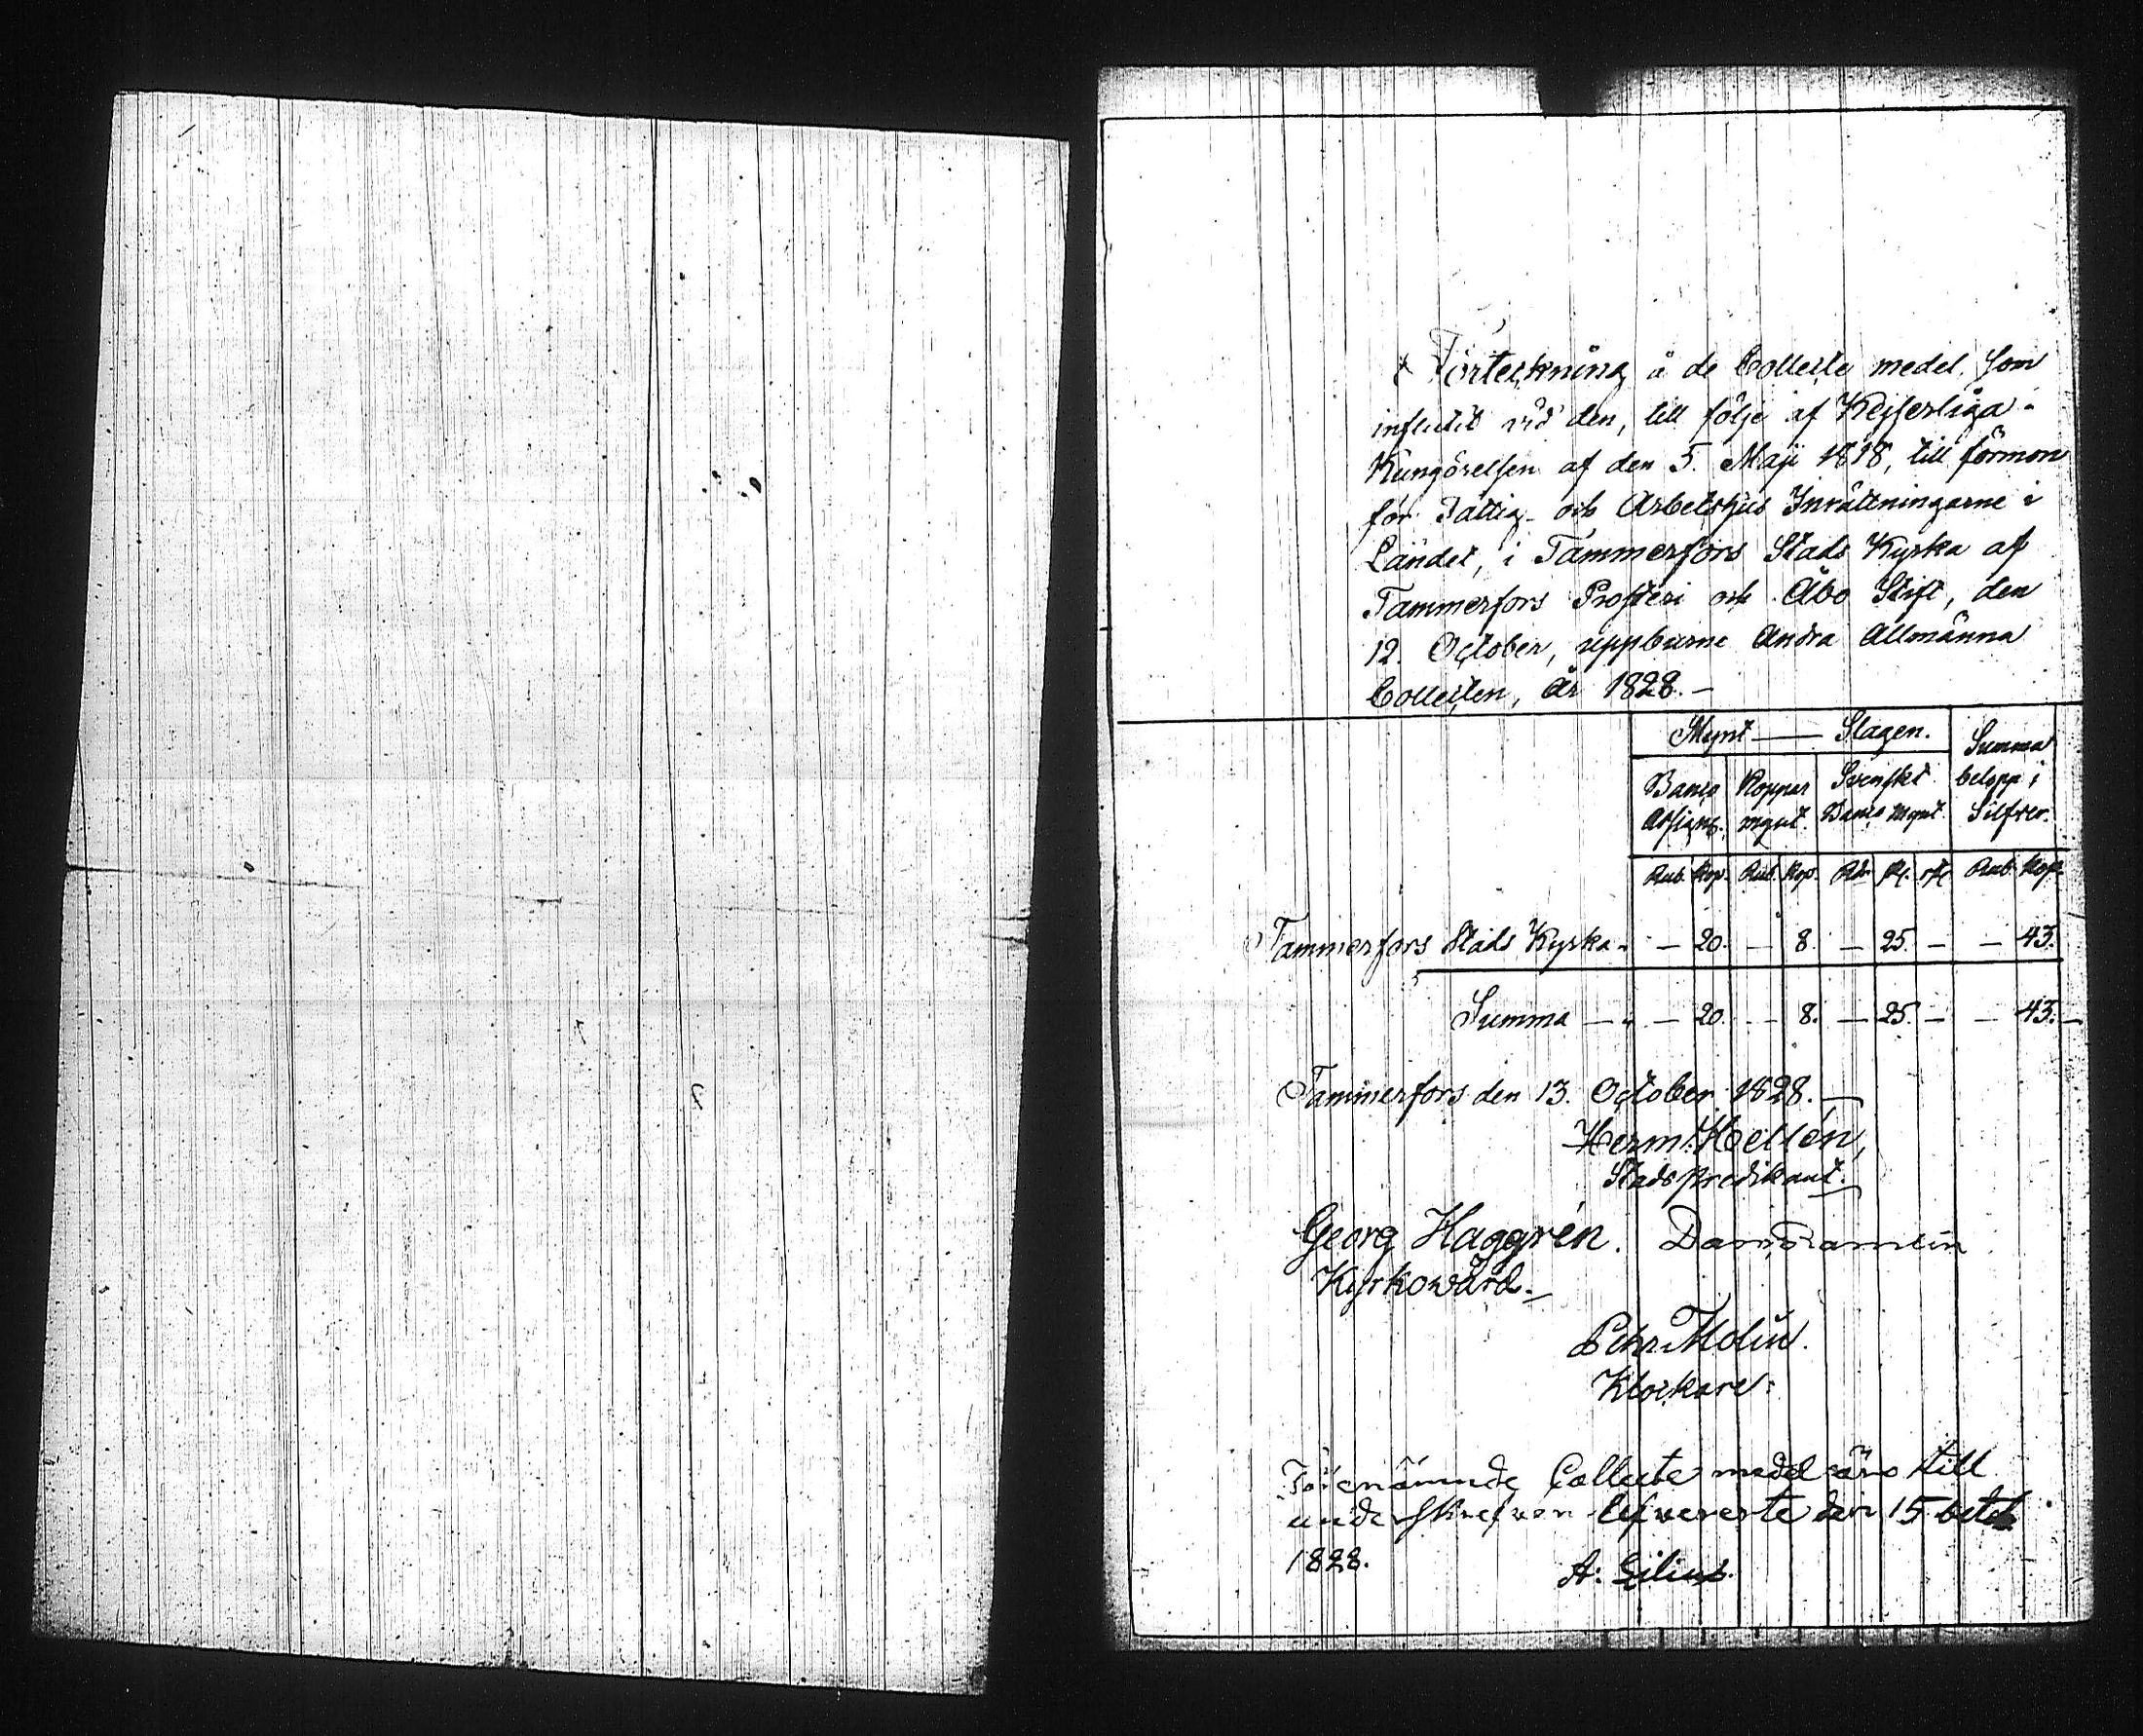 Förteckning å de Collecte medel, som
influtit vid den, till följe af Kejserliga
Kungörelsen af den 5. Maji 1818, till förmon
för Fattig- och Arbetshus Inrättningarne i
Landet, i Tammerfors Stads Kyrka af
Tammerfors Prosteri och Åbo Stift, den
12. October, uppburne Andra Allmänna
Collecten, År 1828.—
Mynt — Slagen. Summa
Banco Koppar Svenskt belopp i
Assign. mynt. Banco Mynt. Silfver.
Rub. Kop. Rub. Kop. Rdr. sk. rst. Rub. Kop.
Tammerfors Stads Kyrka — 20. — 8. — 25. — — 43.
Summa — — 20. — 8. — 25. — — 43.—
Tammerfors den 13. October 1828.—
Herm. Hellén,
Stads predikant.
Georg Haggrén.
Kyrkowärd.—
Pehr Molin.
Klockare.
Förenämnde Collecte medel äro till
underskrefven lefvererte den 15
1828. A: Gilius.